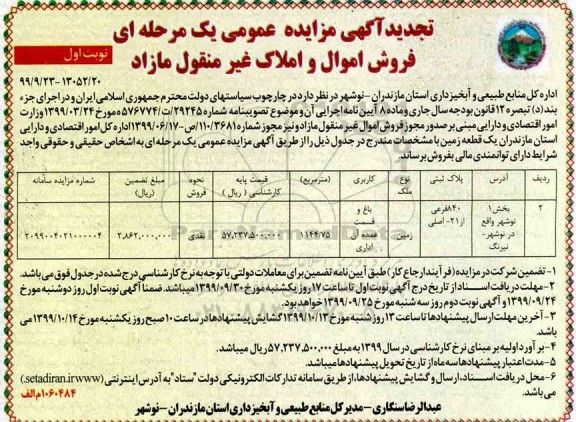 تجدید آگهی مزایده عمومی یک مرحله ای
فروش اموال و املاک غیر منقول مازاد
نوبت اول
۹۹/۹/۲۳-۱۳۰۵۲/۲۰
اداره کل منابع طبیعی و آبخیزداری استان مازندران -نوشهر در نظر دارد در چارچوب سیاستهای دولت محترم جمهوری اسلامی ایران و در اجرای جزء
بند(د) تبصره ۱۲ قانون بودجه سال جاری و ماده ۸ آیین نامه اجرایی آن و موضوع تصویبنامه شماره ۲۹۲۴۵/ت۵۷۶۷۷۴ه مورخ ۱۳۹۹/۰۳/۲۴ وزارت
امور اقتصادی و دارایی مبنی بر صدور مجوز فروش اموال غیر منقول مازاد و نیز مجوز شماره ۱۱۰/۳۶۸۱/ص-۱۳۹۹/۰۶/۱۷ اداره کل امور اقتصادی و دارایی
استان مازندران یک قطعه زمین با مشخصات مندرج در جدول ذیل را از طریق آگهی مزایده عمومی یک مرحله ای به اشخاص حقیقی و حقوقی واجد
شرایط دارای توانمندی مالی بفروش برساند.
ردیف آدرس پلاک ثبتی نوع ملک کاربری (مترمربع) قیمت پایه کارشناسی ( ریال ) نحوه فروش مبلغ تضمین (ریال) شماره مزایده سامانه
۲ بخش۱ نوشهر واقع در نوشهر- نیرنگ ۸۴۰فرعی از۲۱- اصلی زمین باغ و قسمت عمده آن اداری ۱۱۴۴/۷۵ ۵۷,۲۳۷,۵۰۰,۰۰۰ نقدی ۲,۸۶۲,۰۰۰,۰۰۰ ۲۰۹۹۰۰۴۰۲۱۰۰۰۰۰۴
۱- تضمین شرکت در مزایده (فرآیند ارجاع کار) طبق آیین نامه تضمین برای معاملات دولتی با توجه به نرخ کارشناسی درج شده در جدول فوق می باشد.
۲- مهلت دریافت اسناد از تاریخ درج آگهی نوبت اول تا ساعت ۱۷ روز یکشنبه مورخ ۱۳۹۹/۰۹/۳۰ میباشد. ضمنا آگهی نوبت اول روز دوشنبه مورخ
۱۳۹۹/۰۹/۲۴ و آگهی نوبت دوم روز سه شنبه مورخ ۱۳۹۹/۰۹/۲۵ خواهد بود.
۳- آخرین مهلت ارسال پیشنهادها تا ساعت ۱۳ روز شنبه مورخ ۱۳۹۹/۱۰/۱۳ گشایش پیشنهادها در ساعت ۱۰ صبح روز یکشنبه مورخ ۱۳۹۹/۱۰/۱۴ می
باشد.
۴- بر آورد اولیه بر مبنای نرخ کارشناسی در سال ۱۳۹۹ به مبلغ ۵۷,۲۳۷,۵۰۰,۰۰۰ ریال میباشد.
۵- مدت اعتبار پیشنهادها سه ماه از تاریخ تحویل پیشنهادها میباشد.
۶- محل دریافت اسناد، ارسال و گشایش پیشنهادها، از طریق سامانه تدارکات الکترونیکی دولت "ستاد" به آدرس اینترنتی (setadiran.irwww.)
می باشد.
۱۰۶۰۴۸۴م الف
عبدالرضا سنگاری - مدیر کل منابع طبیعی و آبخیزداری استان مازندران - نوشهر